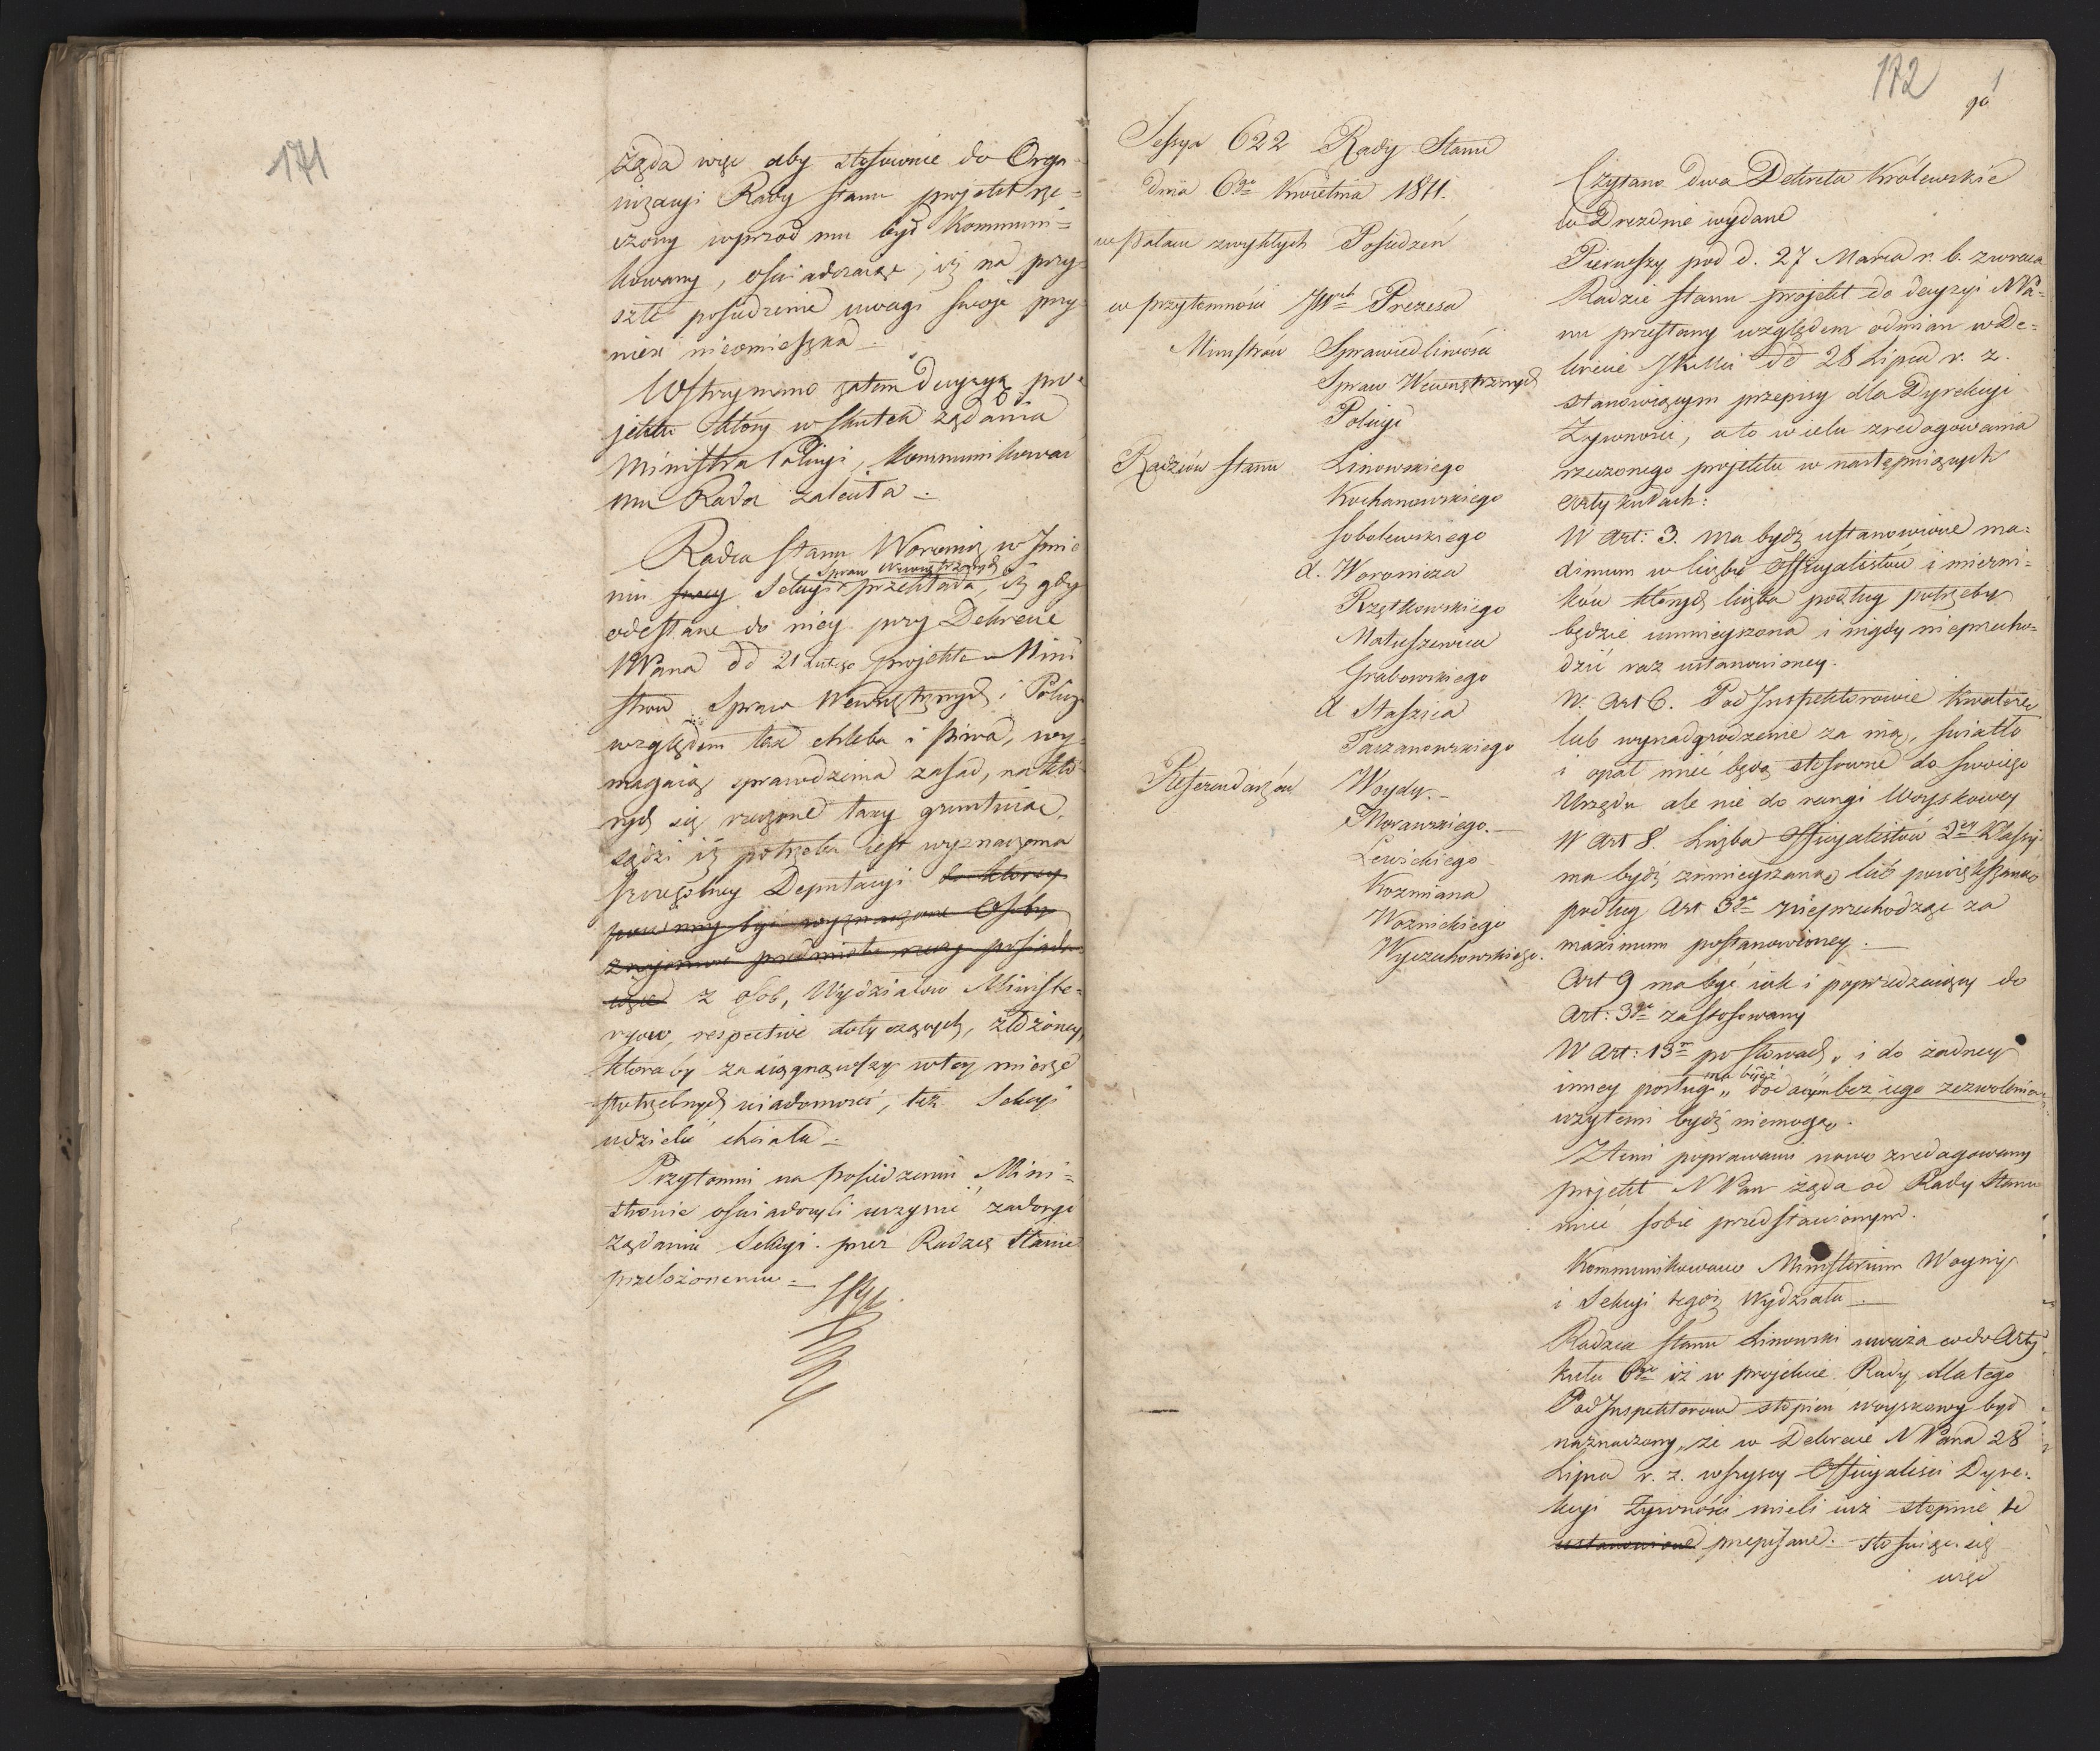 171
żąda więc aby stosownie do Orga-
nizacyi Rady Stanu projekt rze-
czony wprzód mu był kommuni-
kowany, oświadczaiąc, iż na przy-
szłe posiedzenie uwagi swoje przy-
nieść nieomieszka.
Wstrzymano zatem decyzyą pro-
jektu który w skutek żądania
Ministra Policyi, kommunikować
mu Rada zaleciła.
Radca Stanu Woronicz w Imie-
niu swey Sekcyi Spraw Wewnętrznych przekłada, iż gdy
odesłane do niey przy Dekrecie
NPana dd 21 Lutego projekta Mini
strów Spraw Wewnętrznych i Policyi
względem tax chleba i piwa, wy-
magaią sprawdzenia zasad, na któ-
rych się rzeczone taxy gruntuiąc,
sądzi iż potrzeba iest wyznaczenia
szczególney Deputacyi do ktorey
powinny być wyznaczone Osoby
znajomość przedmiotu rzeczy posiada-
iące z osób, Wydziałow Ministe-
ryow, respective dotyczących, złożoney,
ktoraby zasiągnąwszy w tey mierze
potrzebnych wiadomości, też Sekcyi
udzielić chciała.
Przytomni na posiedzeniu Mini-
strowie oświadczyli uczynić zadosyć
żądaniu Sekcyi przez Radzcę Stanu
przełożonemu.
172
Sessya 622 Rady Stanu
dnia 6go Kwietnia 1811.
w Pałacu zwykłych Posiedzeń
w przytomności JW Prezesa
Ministrów Sprawiedliwości
Spraw Wewnętrznych
Policyi
Radzców Stanu Linowskiego
Kochanowskiego
Sobolewskiego
d. Woronicza
Rzętkowskiego
Matuszewica
Grabowskiego
d Staszica
Tarzanowskiego
Referendarzów Woydy.
Morawskiego.
Lewickiego
Kozmiana
Woznickiego
Wyczechowskiego.
Czytano dwa Dekreta Królewskie
w Dreznie wydane
Pierwszy pod d. 27 Marca r. b. zwraca
Radzie Stanu projekt do decyzyi NPa-
nu przesłany względem odmian w De-
krecie JKMci dd 28 Lipca r. z.
stanowiącym przepisy dla Dyrekcyi
Żywności, a to w celu zredagowania
rzeczonego projektu w następuiących
artykułach:
W Art: 3. ma bydź ustanowione ma-
ximum w liczbie Officyalistów i mierni-
ków których liczba podług potrzeby
będzie umnieyszona i nigdy nieprzecho-
dzić raz ustanowioney.
W Art 6. Pod Inspektorowie kwaterę
lub wynadgrodzenie za nią, światło
i opał mieć będą stosowne do swoiego
Urzędu ale nie do rangi Woyskowey
W Art 8. Liczba Officyalistów 2ey Klassy
ma bydź zmnieyszaną lub powiększaną
podług Art 3go nieprzechodząc za
maximum postanowioney.
Art 9 ma być iak i poprzedzaiący do
Art: 3go zastosowany
W Art: 13m po słowach „i do żadney
inney posługi„ ma bydź dodanym bez iego zezwolenia
użytemi bydź niemogą.
Z temi poprawami nowo zredagowany
projekt N Pan żąda od Rady Stanu
mieć sobie przedstawionym.
Kommunikowano Ministerium Woyny
i Sekcyi tegoż Wydziału.
Radzca Stanu Linowski uważa co do Arty
kułu 6go iż w projekcie Rady dlatego
Pod Inspektorom stopień woyskowy był
naznaczony, że w Dekrecie N Pana 28
Lipca r. z. wszyscy Officyaliści Dyre-
kcyi Żywności mieli iuż stopnie te
ustanowione przepisane. Stosuiąc się
więc